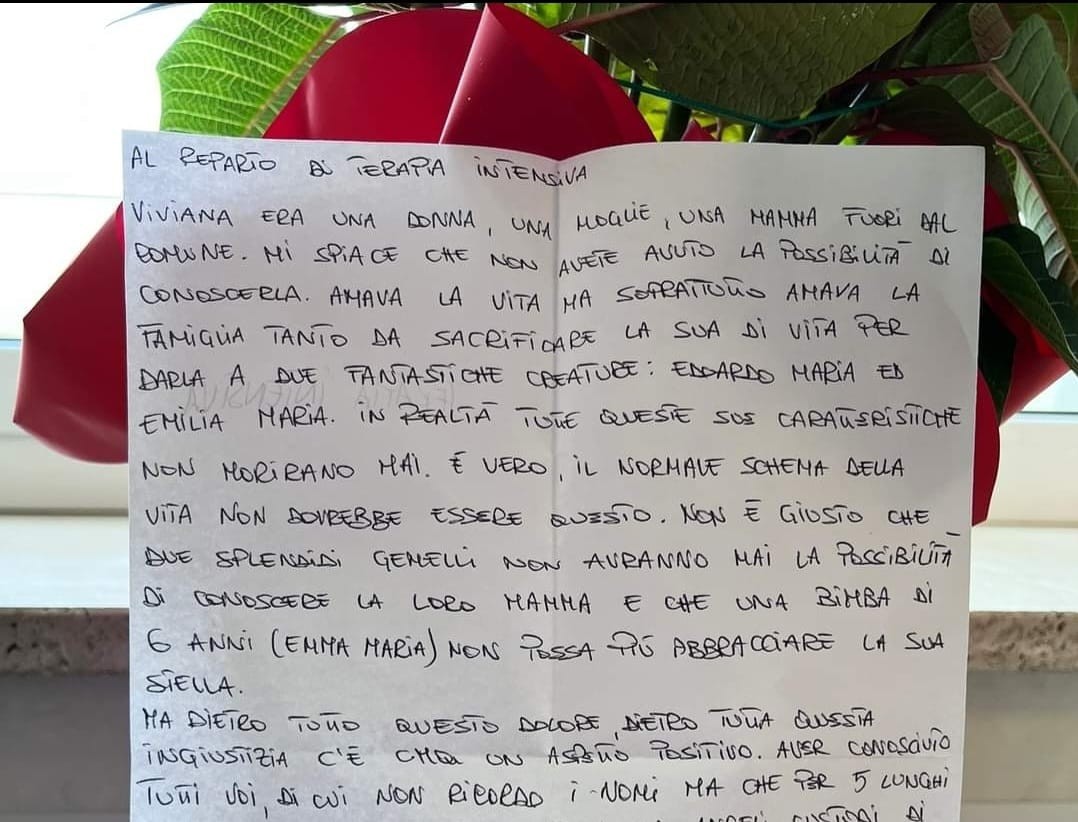 AL REPARTO DI TERAPIA INTENSIVA
VIVIANA ERA UNA DONNA, UNA MOGLIE, UNA MAMMA FUORI DAL
COMUNE. MI SPIACE CHE NON AVETE AVUTO LA POSSIBILITÀ DI
CONOSCERLA. AMAVA LA VITA MA SOPRATTUTTO AMAVA LA
FAMIGLIA TANTO DA SACRIFICARE LA SUA DI VITA PER
DARLA A DUE FANTASTICHE CREATURE: EDOARDO MARIA ED
EMILIA MARIA. IN REALTÀ TUTTE QUESTE SUE CARATTERISTICHE
NON MORIRANO MAI. È VERO, IL NORMALE SCHEMA DELLA
VITA NON DOVREBBE ESSERE QUESTO. NON È GIUSTO CHE
DUE SPLENDIDI GEMELLI NON AVRANNO MAI LA POSSIBILITÀ
DI CONOSCERE LA LORO MAMMA E CHE UNA BIMBA DI
6 ANNI (EMMA MARIA) NON POSSA PIÙ ABBRACCIARE LA SUA
STELLA.
MA DIETRO TUTTO QUESTO DOLORE, DIETRO TUTTA QUESTA
INGIUSTIZIA C'È UN ASPETTO POSITIVO. AVER CONOSCIUTO
TUTTI VOI, DI CUI NON RICORDO I NOMI MA CHE PER 5 LUNGHI
CUSTODI DI